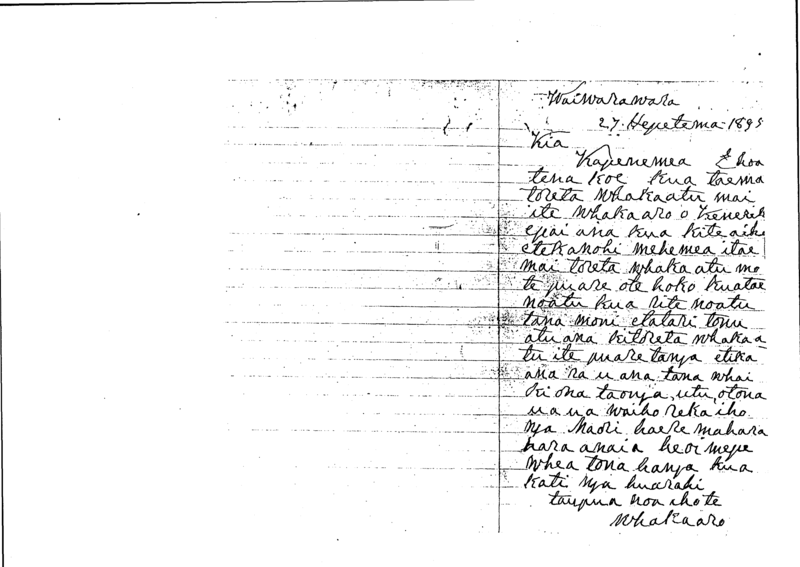 Waiwarawara
27 Hepetema 1895
Kia
Kapenemea E hoa
tena koe kua taema
toreta whakaatu mai
ite whakaaro o
epai ana kua kite aihe
etekanohi mehemea itae
mai toreta whaka atu mo
te puare ote hoko kuatae
noatu kua rite noatu
tana moni etatari tonu
atu ana kitoreta whakaa-
tu ite puare tanga etika
ana ra u ana tana whai
ki ona taonga, utu, otona
ua ua waiho reka iho
nga Maori haere mahara
hara anaia heoi mepe
whea tona hanga kua
kati nga huarahi
taupua noa iho te
whakaaro